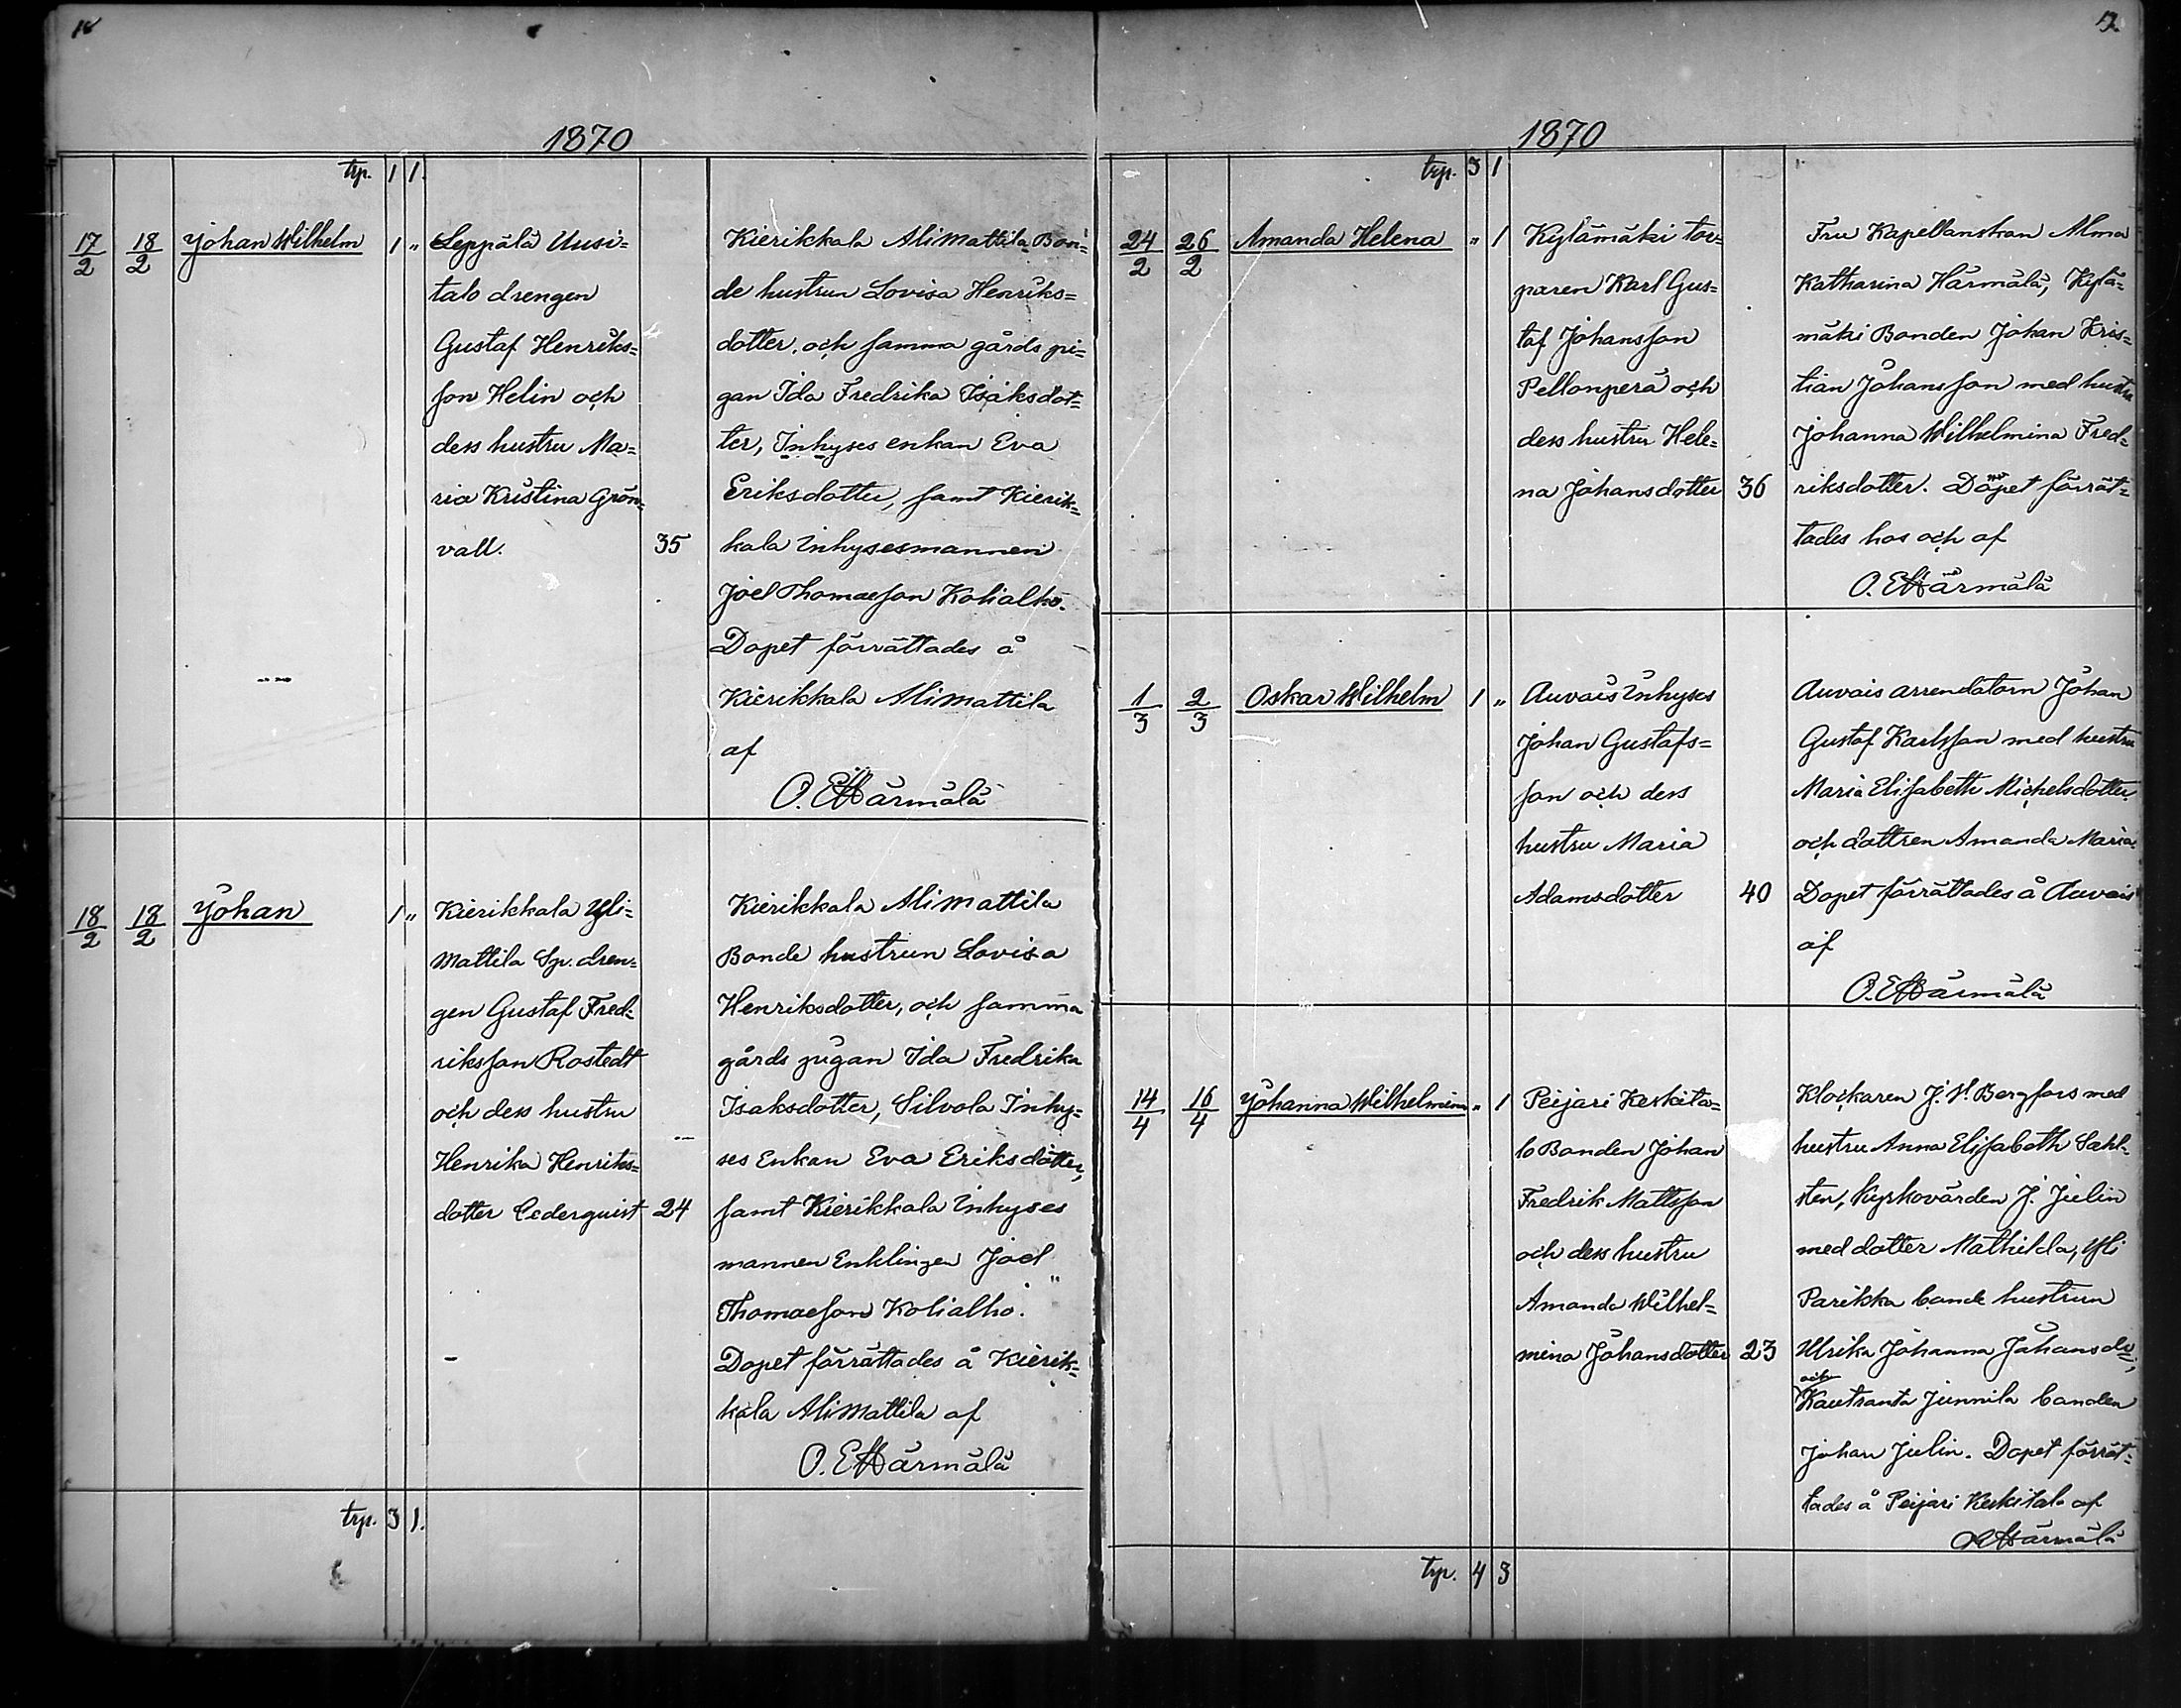 1870
trp. 1 1.
17/2 18/2 Johan Wilhelm 1 " Leppälä Uusi=
talo drengen
Gustaf Henriks=
son Helin och
dess hustru Ma=
ria Kristina Grön=
vall. 35
Kierikkala Alimattila Bon=
de hustrun Lovisa Henriks=
dotter, och samma gårds pi=
gan Ida Fredrika Isaksdot=
ter, Inhyses enkan Eva
Eriksdotter, samt Kierik=
kala Inhysesmannen
Joel Thomasson Kolialho.
Dopet förrättades å
Kierikkala Alimattila
af
O. E. Härmälä
18/2 18/2 Johan 1 " Kierikkala Yli=
Mattila Sp. dren=
gen Gustaf Fred=
riksson Rostedt
och dess hustru
Henrika Henriks=
dotter Cederquist 24
Kierikkala Alimattila
Bonde hustrun Lovisa
Henriksdotter, och samma
gårds pigan Ida Fredrika
Isaksdotter, Silvola Inhy=
ses Enkan Eva Eriksdotter,
samt Kierikkala Inhyses
mannen Enklingen Joel
Thomasson Kolialho.
Dopet förrättades å Kierik=
kala Alimattila af
O. E. Härmälä
trp. 3 1.
1870
trp. 3 1
24/2 26/2 Amanda Helena " 1 Kylämäki tor=
paren Karl Gus=
taf Johansson
Pellonperä och
dess hustru Hele=
na Johansdotter 36
Fru Kapellanskan Alma
Katharina Härmälä, Kylä=
mäki Bonden Johan Kris=
tian Johansson med hustru
Johanna Wilhelmina Fred=
riksdotter. Dopet förrät=
tades hos och af
O. E. Härmälä
1/3 2/3 Oskar Wilhelm 1 " Auvais Inhyses
Johan Gustafs=
son och dess
hustru Maria
Adamsdotter 40
Auvais arrendatorn Johan
Gustaf Karlsson med hustru
Maria Elisabeth Michelsdotter
och dottren Amanda Maria.
Dopet förrättades å Auvais
af
O. E. Härmälä
14/4 16/4 Johanna Wilhelmina " 1 Peijari Keskita=
lo Bonden Johan
Fredrik Mattsson
och dess hustru
Amanda Wilhel=
mina Johansdotter 23
Klockaren J. V. Bergfors med
hustru Anna Elisabeth Sahl=
sten, Kyrkovärden J. Juelin
med dotter Mathilda, Yli
Parikka bonde hustrun
Ulrika Johanna Johansdr,
och
Kautranta Junnila bonden
Johan Juelin. Dopet förrät=
tades å Peijari Keskitalo af
O E Härmälä
trp. 4 3